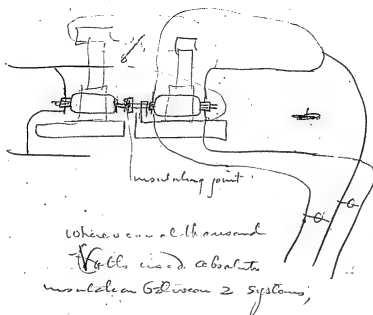 insulating joint
where several thousand
Volts used. absolute
insulation between 2 systems,